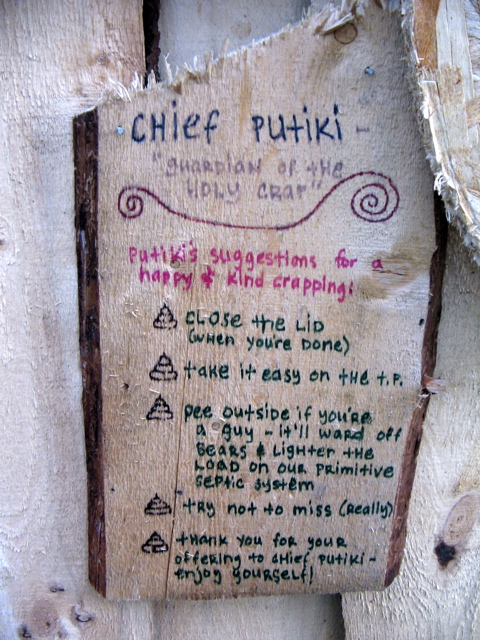 CHief PUtiKi -
"GUARDIAN OF tHE
HOLY CRAP"
PUtiKi's suggestions for a
happy & kind crapping:
CLOSE the LiD
(WHEN YOU'RE DONE)
take it easy on tHE t.P.
pee outside if you're
a guy - it'll ward off
BEARS & LIGHTER tHE
LOAD ON OUR PRIMITIVE
SEPtic SYStEM
tRY Not to miss (REALLY)
tHANK YOU FOR YOUR
OFFERING to CHIEF PUtiKi -
ENJOY YOURSELF!